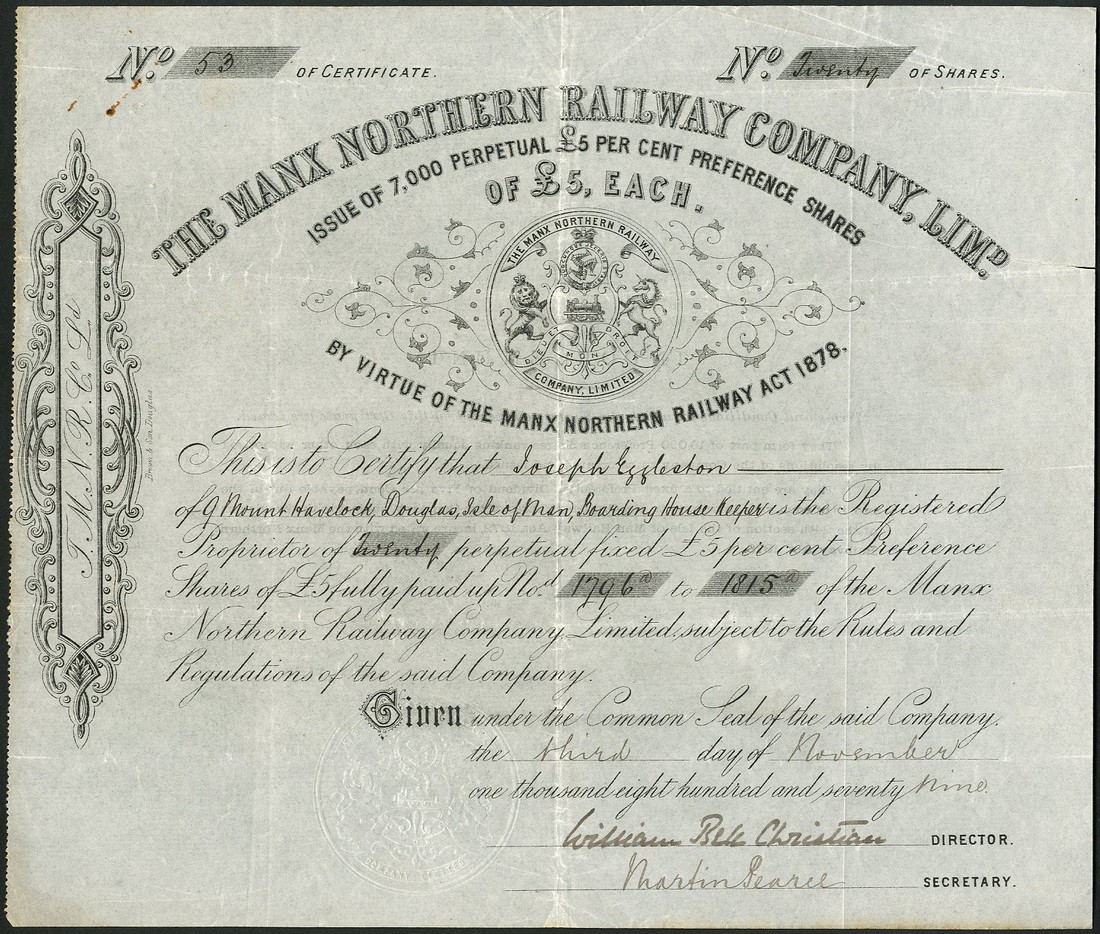 No. 53 OF CERTIFICATE.
No. Twenty OF SHARES.
THE MANX NORTHERN RAILWAY COMPANY, LIMD.
ISSUE OF 7,000 PERPETUAL £5 PER CENT PREFERENCE SHARES
OF £5, EACH.
THE MANX NORTHERN RAILWAY
DIEU ET MON DROIT
COMPANY, LIMITED
BY VIRTUE OF THE MANX NORTHERN RAILWAY ACT 1878.
T. M. N. R. Co. Ld
Brown & Son, Douglas
This is to Certify that Joseph Eggleston
of 9 Mount Havelock, Douglas, Isle of Man, Boarding House Keeper is the Registered
Proprietor of Twenty perpetual fixed £5 per cent Preference
Shares of £5 fully paid up Nod. 1796a to 1815a of the Manx
Northern Railway Company, Limited, subject to the Rules and
Regulations of the said Company.
Given under the Common Seal of the said Company.
the third day of November
one thousand eight hundred and seventy nine.
William Bell Christian DIRECTOR.
Martin Pearce SECRETARY.
COMPANY LIMITED